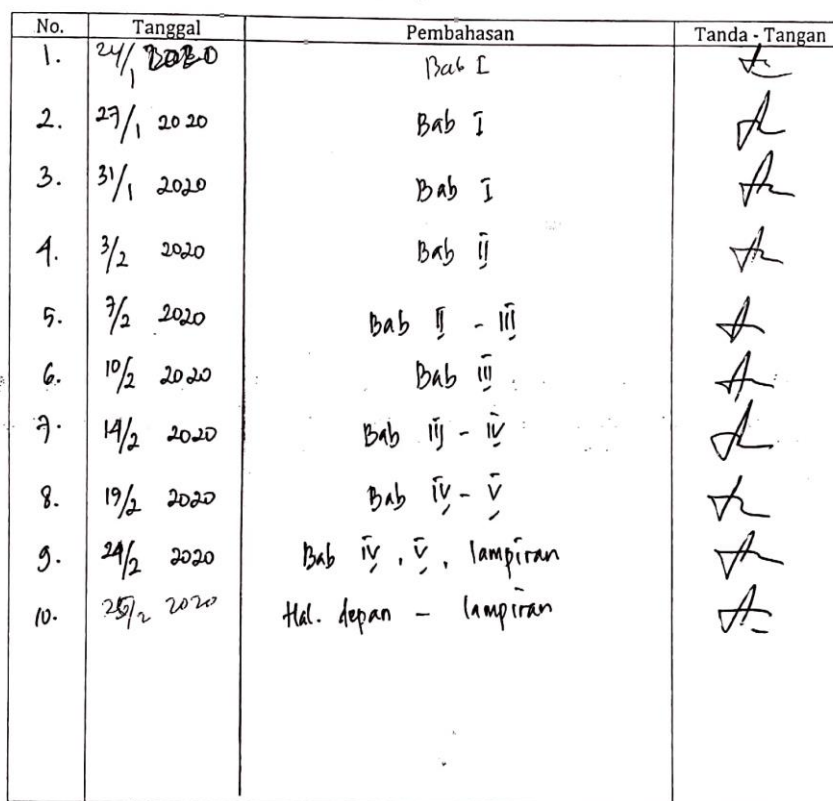 No. Tanggal Pembahasan Tanda - Tangan
1. 24/1 2020 Bab I
2. 27/1 2020 Bab I
3. 31/1 2020 Bab I
4. 3/2 2020 Bab II
5. 7/2 2020 Bab II - III
6. 10/2 2020 Bab III
7. 14/2 2020 Bab III - IV
8. 19/2 2020 Bab IV - V
9. 24/2 2020 Bab IV, V, lampiran
10. 25/2 2020 Hal. depan - lampiran